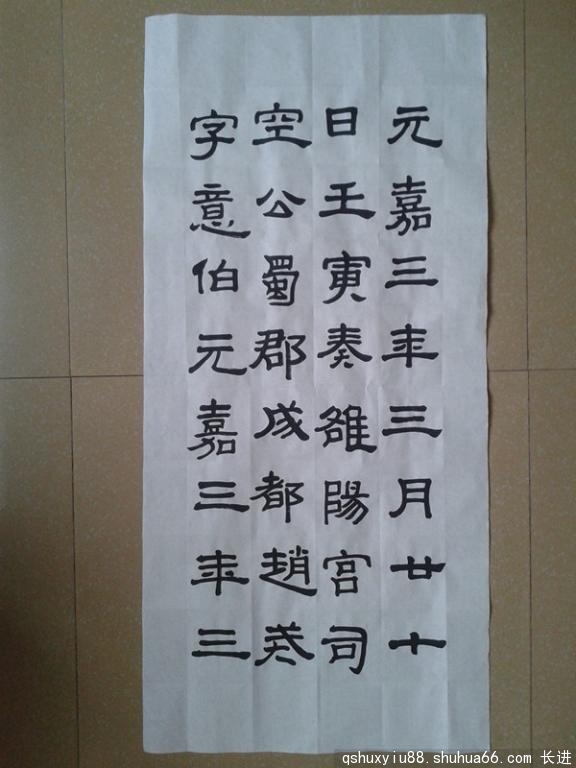 元嘉三年三月廿十
日王寅奏雒陽宫司
空公蜀郡成都趙戒
字意伯元嘉三年三
qshuxyiu88.shuhua66.com 长进